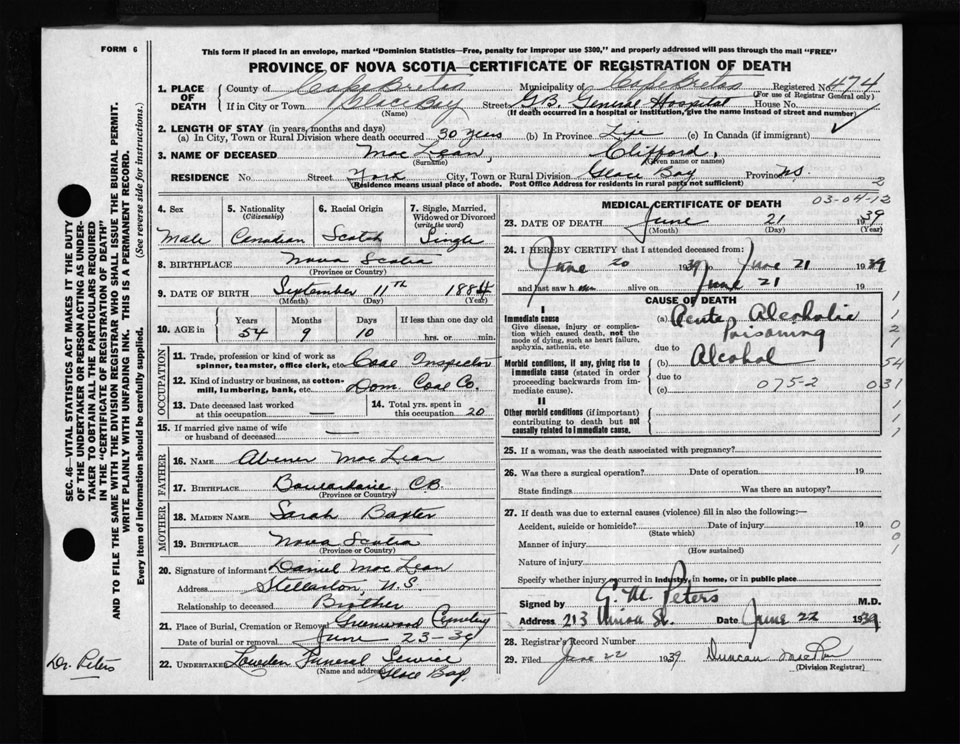 FORM 6
This form if placed in an envelope, marked "Dominion Statistics—Free, penalty for improper use $300," and properly addressed will pass through the mail "FREE"
PROVINCE OF NOVA SCOTIA—CERTIFICATE OF REGISTRATION OF DEATH
1. PLACE OF DEATH County of Cape Breton Municipality of Cape Breton Registered No 474
(For use of Registrar General only)
If in City or Town Glace Bay Street G.B. General Hospital House No.
(Name) (If death occurred in a hospital or institution, give the name instead of street and number)
2. LENGTH OF STAY (in years, months and days)
(a) In City, Town or Rural Division where death occurred 30 years (b) In Province Life (c) In Canada (if immigrant)
3. NAME OF DECEASED MacLean, Clifford,
(Surname) (Given name or names)
RESIDENCE No Street York City, Town or Rural Division Glace Bay Province NS.
(Residence means usual place of abode. Post Office Address for residents in rural parts not sufficient) 2
4. Sex Male
5. Nationality (Citizenship) Canadian
6. Racial Origin Scotch
7. Single, Married, Widowed or Divorced (write the word) Single
8. BIRTHPLACE Nova Scotia
(Province or Country)
9. DATE OF BIRTH September 11th 1884
(Month) (Day) (Year)
10. AGE in Years 54 Months 9 Days 10 If less than one day old hrs. min.
OCCUPATION
11. Trade, profession or kind of work as spinner, teamster, office clerk, etc. Coal Inspector
12. Kind of industry or business, as cotton-mill, lumbering, bank, etc. Dom. Coal Co.
13. Date deceased last worked at this occupation —
14. Total yrs. spent in this occupation 20
15. If married give name of wife or husband of deceased —
FATHER
16. NAME Abener MacLean
17. BIRTHPLACE Boulardarie, C.B.
(Province or Country)
MOTHER
18. MAIDEN NAME Sarah Baxter
19. BIRTHPLACE Nova Scotia
(Province or Country)
20. Signature of informant Daniel MacLean
Address Stellarton, N.S.
Relationship to deceased Brother
21. Place of Burial, Cremation or Removal Greenwood Cemetery
Date of burial or removal June 23-39
22. UNDERTAKER Lowden Funeral Service
(Name and address) Glace Bay
MEDICAL CERTIFICATE OF DEATH
03-04-12
23. DATE OF DEATH June 21 1939
(Month) (Day) (Year)
24. I HEREBY CERTIFY that I attended deceased from:
June 20 1939 to June 21 1939
and last saw h alive on June 21 19
CAUSE OF DEATH
I
Immediate cause
Give disease, injury or complication which caused death, not the mode of dying, such as heart failure, asphyxia, asthenia, etc.
(a) Acute Alcoholic Poisoning
due to
Morbid conditions, if any, giving rise to immediate cause (stated in order proceeding backwards from immediate cause).
(b) Alcohol
due to
(c) 075-2
II
Other morbid conditions (if important) contributing to death but not causally related to immediate cause.
1
1
2
1
54
031
1
1
1
25. If a woman, was the death associated with pregnancy?
26. Was there a surgical operation? Date of operation 19
State findings Was there an autopsy?
27. If death was due to external causes (violence) fill in also the following:—
Accident, suicide or homicide? Date of injury 19
(State which)
Manner of injury
(How sustained)
Nature of injury
0
0
1
Specify whether injury occurred in industry, in home, or in public place
Signed by E. M. Peters M.D.
Address 213 Union St. Date June 22 1939
28. Registrar's Record Number
29. Filed June 22 1939 Duncan
(Division Registrar)
SEC. 46—VITAL STATISTICS ACT MAKES IT THE DUTY
OF THE UNDERTAKER OR PERSON ACTING AS UNDERTAKER TO OBTAIN ALL THE PARTICULARS REQUIRED
IN THE "CERTIFICATE OF REGISTRATION OF DEATH"
AND TO FILE THE SAME WITH THE DIVISION REGISTRAR WHO SHALL ISSUE THE BURIAL PERMIT.
WRITE PLAINLY WITH UNFADING INK. THIS IS A PERMANENT RECORD.
Every item of information should be carefully supplied. (See reverse side for instructions.)
Dr. Peters